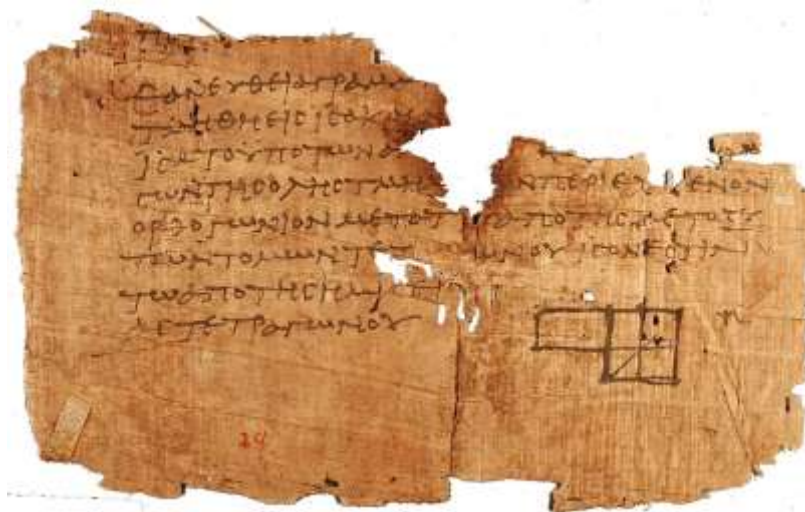 ΕΑΝ ΕΥΘΕΙΑ ΓΡΑΜΜ
ΤΜΗΘΗ ΕΙϹ ΙϹΑ ΚΑΙ
ΙϹΑ ΤΟ ΥΠΟ ΤΩΝ Α
ϹΩΝ ΤΗϹ ΟΛΗϹ ΤΜΗ ΩΝ ΠΕΡΙΕΧ ΜΕΝΟΝ
ΟΡΘΟΓΩΝΙΟΝ ΜΕΤΑ ΤΟΥ ΑΠΟ ΤΗϹ ΜΕΤΟΞΥ
ΤΩΝ ΤΟΜΩΝ ΤΕΤ ΩΝΟΥ ΙϹΟΝ ΕϹΤΙΝ
ΤΩ ΑΠΟ ΤΗϹ ΗΜΙ
ΤΕΤΡΑΓΩΝΟΥ